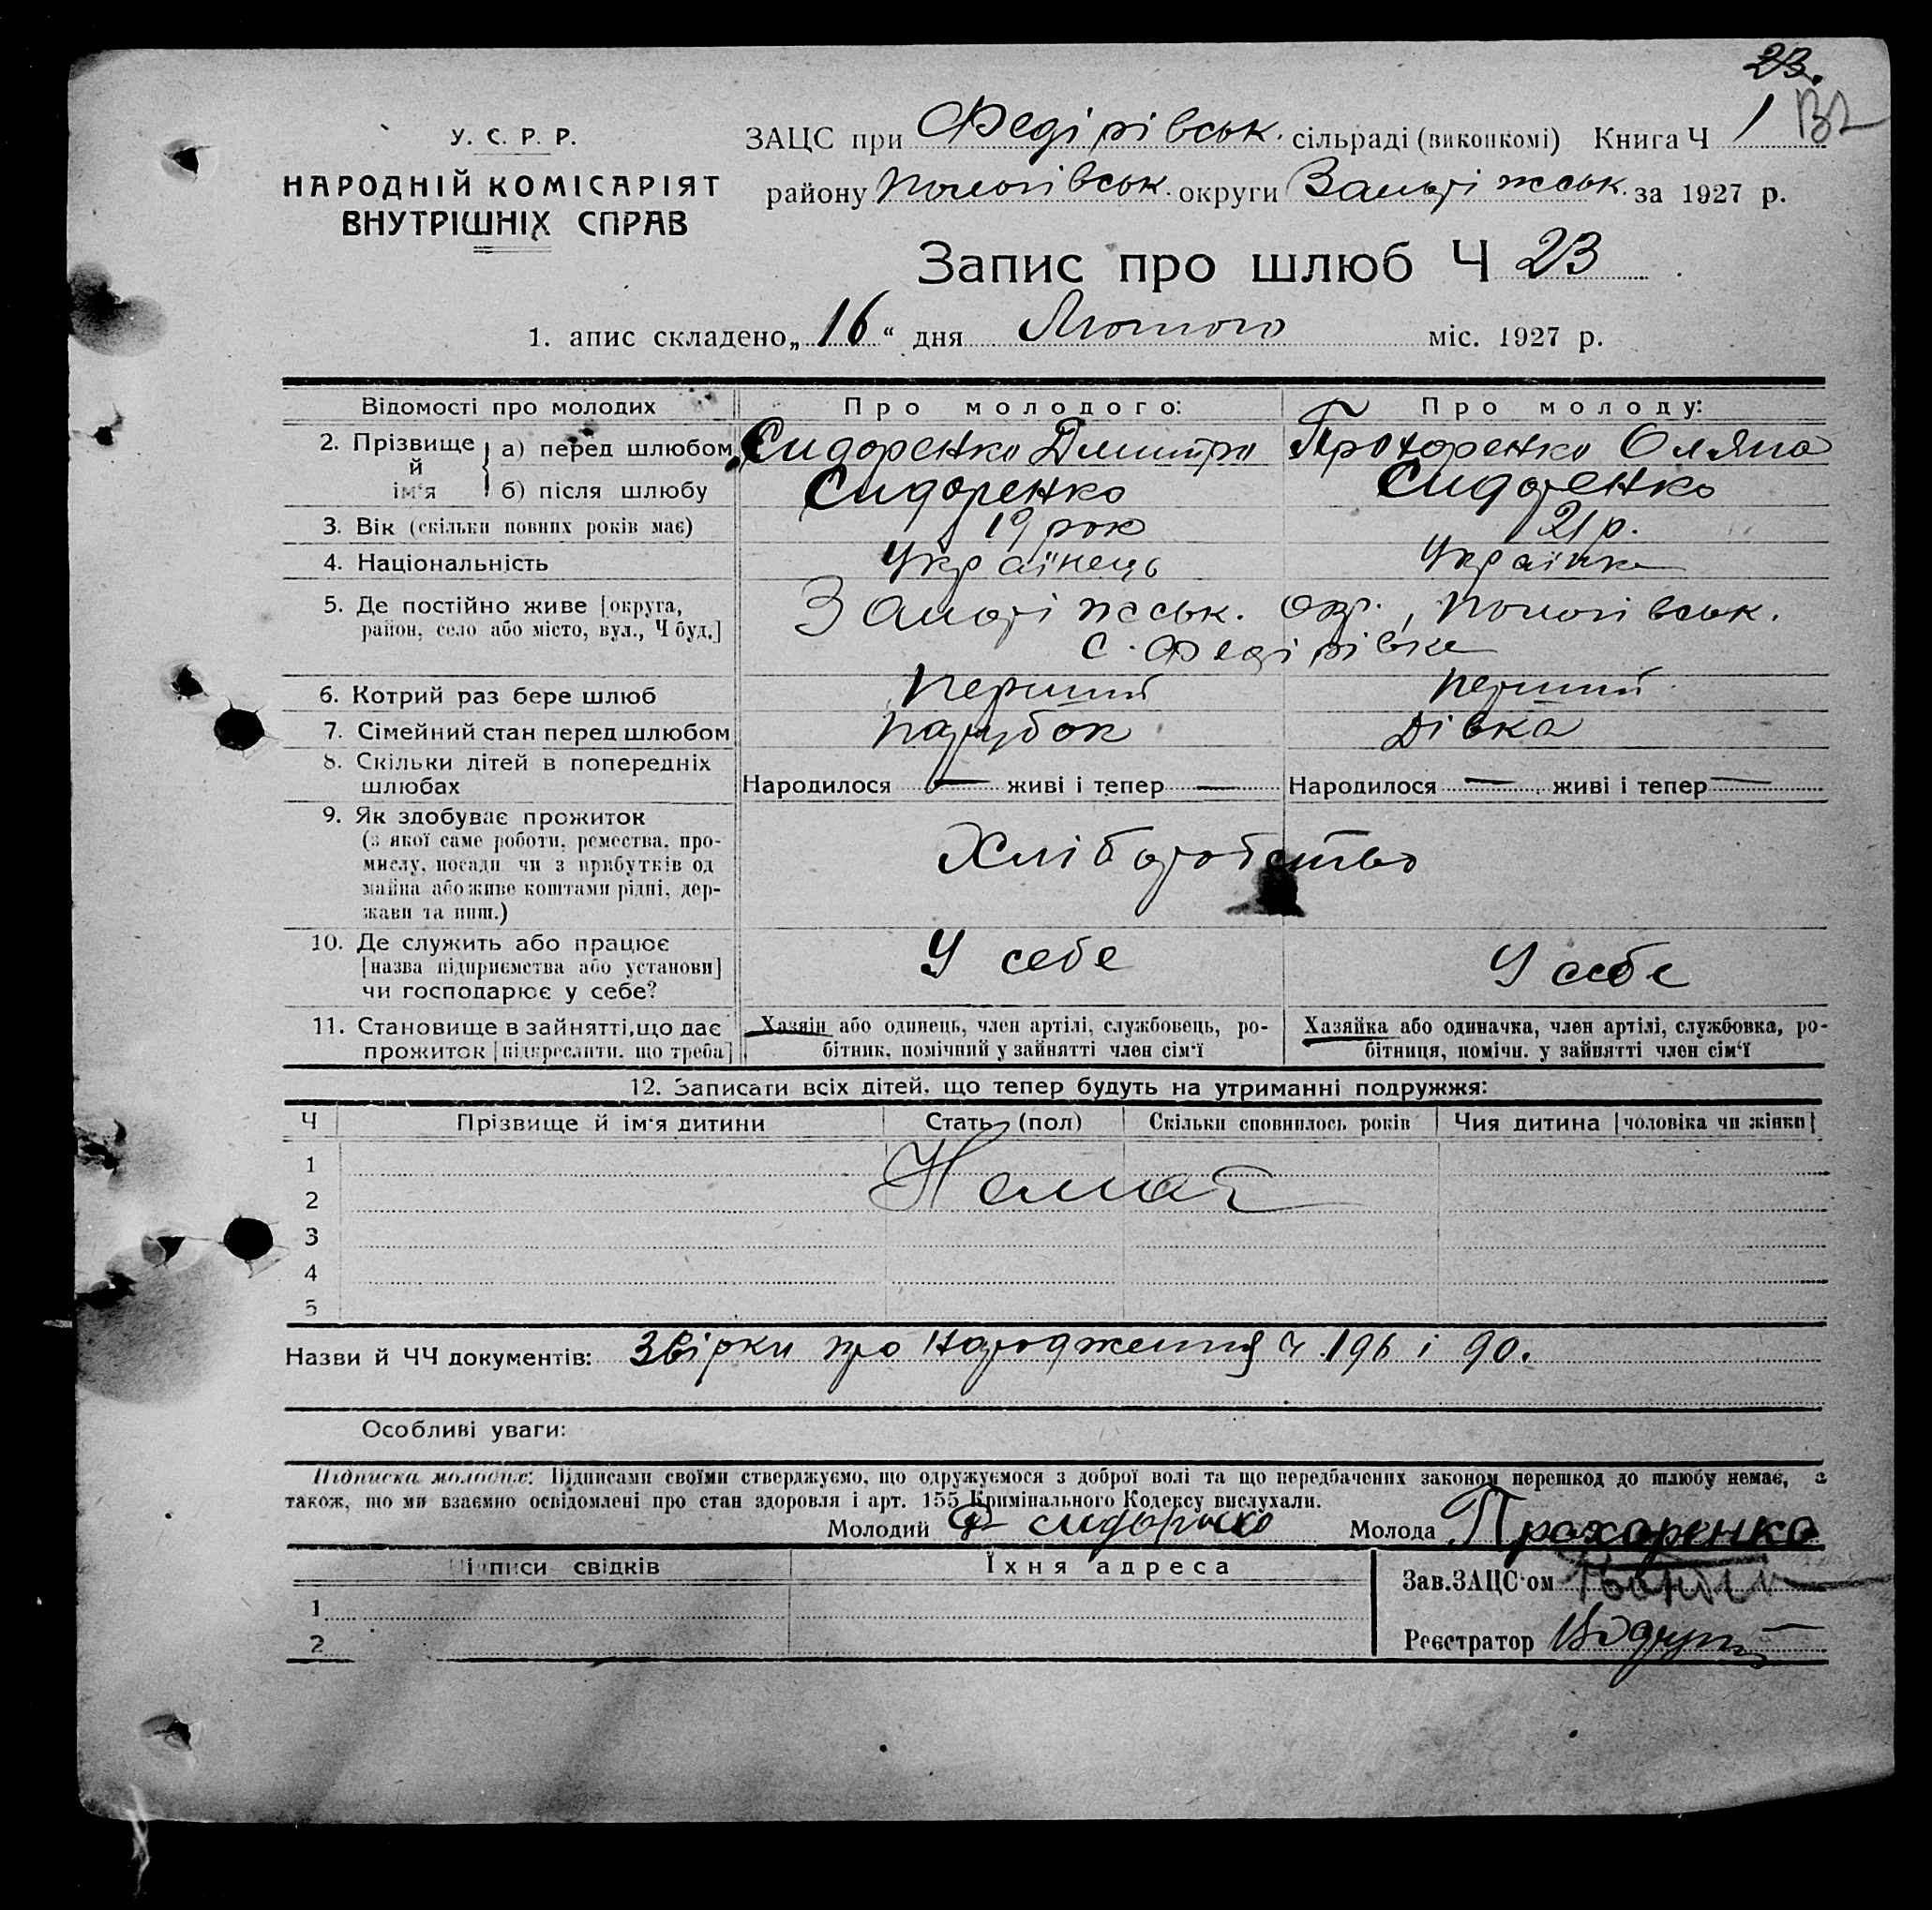 23.
У. С. Р. Р.
НАРОДНІЙ КОМІСАРІЯТ
ВНУТРІШНІХ СПРАВ
ЗАЦС при Федірівськ. сільраді (виконкомі) Книга Ч 1
району Пологівськ. округи Запоріжськ. за 1927 р.
Запис про шлюб Ч 23
1. апис складено „16“ дня Лютого міс. 1927 р.
Відомості про молодих Про молодого: Про молоду:
2. Прізвище й ім‘я а) перед шлюбом Сидоренко Дмитро Прохоренко Оляна
б) після шлюбу Сидоренко Сидоренко
3. Вік (скільки повних років має) 19 рок 21 р.
4. Національність Українець Українка
5. Де постійно живе [округа, Запоріжськ. окр., Пологівськ.
район, село або місто, вул., Ч буд.] с. Федірівка
6. Котрий раз бере шлюб Перший перший
7. Сімейний стан перед шлюбом парубок дівка
8. Скільки дітей в попередніх
шлюбах Народилося — живі і тепер — Народилося — живі і тепер —
9. Як здобуває прожиток
(з якої саме роботи, ремества, про-
мислу, посади чи з прибутків од Хліборобство
майна або живе коштами рідні, дер-
жави та инш.)
10. Де служить або працює У себе У себе
[назва підприємства або установи]
чи господарює у себе?
11. Становище в зайнятті, що дає Хазяїн або одинець, член артілі, службовець, ро- Хазяйка або одиначка, член артілі, службовка, ро-
прожиток [підкреслити, що треба] бітник, помічний у зайнятті член сім‘ї бітниця, помічн. у зайнятті член сім‘ї
12. Записати всіх дітей, що тепер будуть на утриманні подружжя:
Ч Прізвище й ім‘я дитини Стать (пол) Скільки сповнилось років Чия дитина [чоловіка чи жінки]
1
2 Немає
3
4
5
Назви й ЧЧ документів: Звірки про народження ч. 196 і 90.
Особливі уваги:
Підписка молодих: Підписами своїми стверджуємо, що одружуємося з доброї волі та що передбачених законом перешкод до шлюбу немає, а
також, що ми взаємно освідомлені про стан здоровля і арт. 155 Кримінального Кодексу вислухали.
Молодий Молода Прохоренко
Підписи свідків Їхня адреса
Зав. ЗАЦС‘ом
1
Реєстратор
2